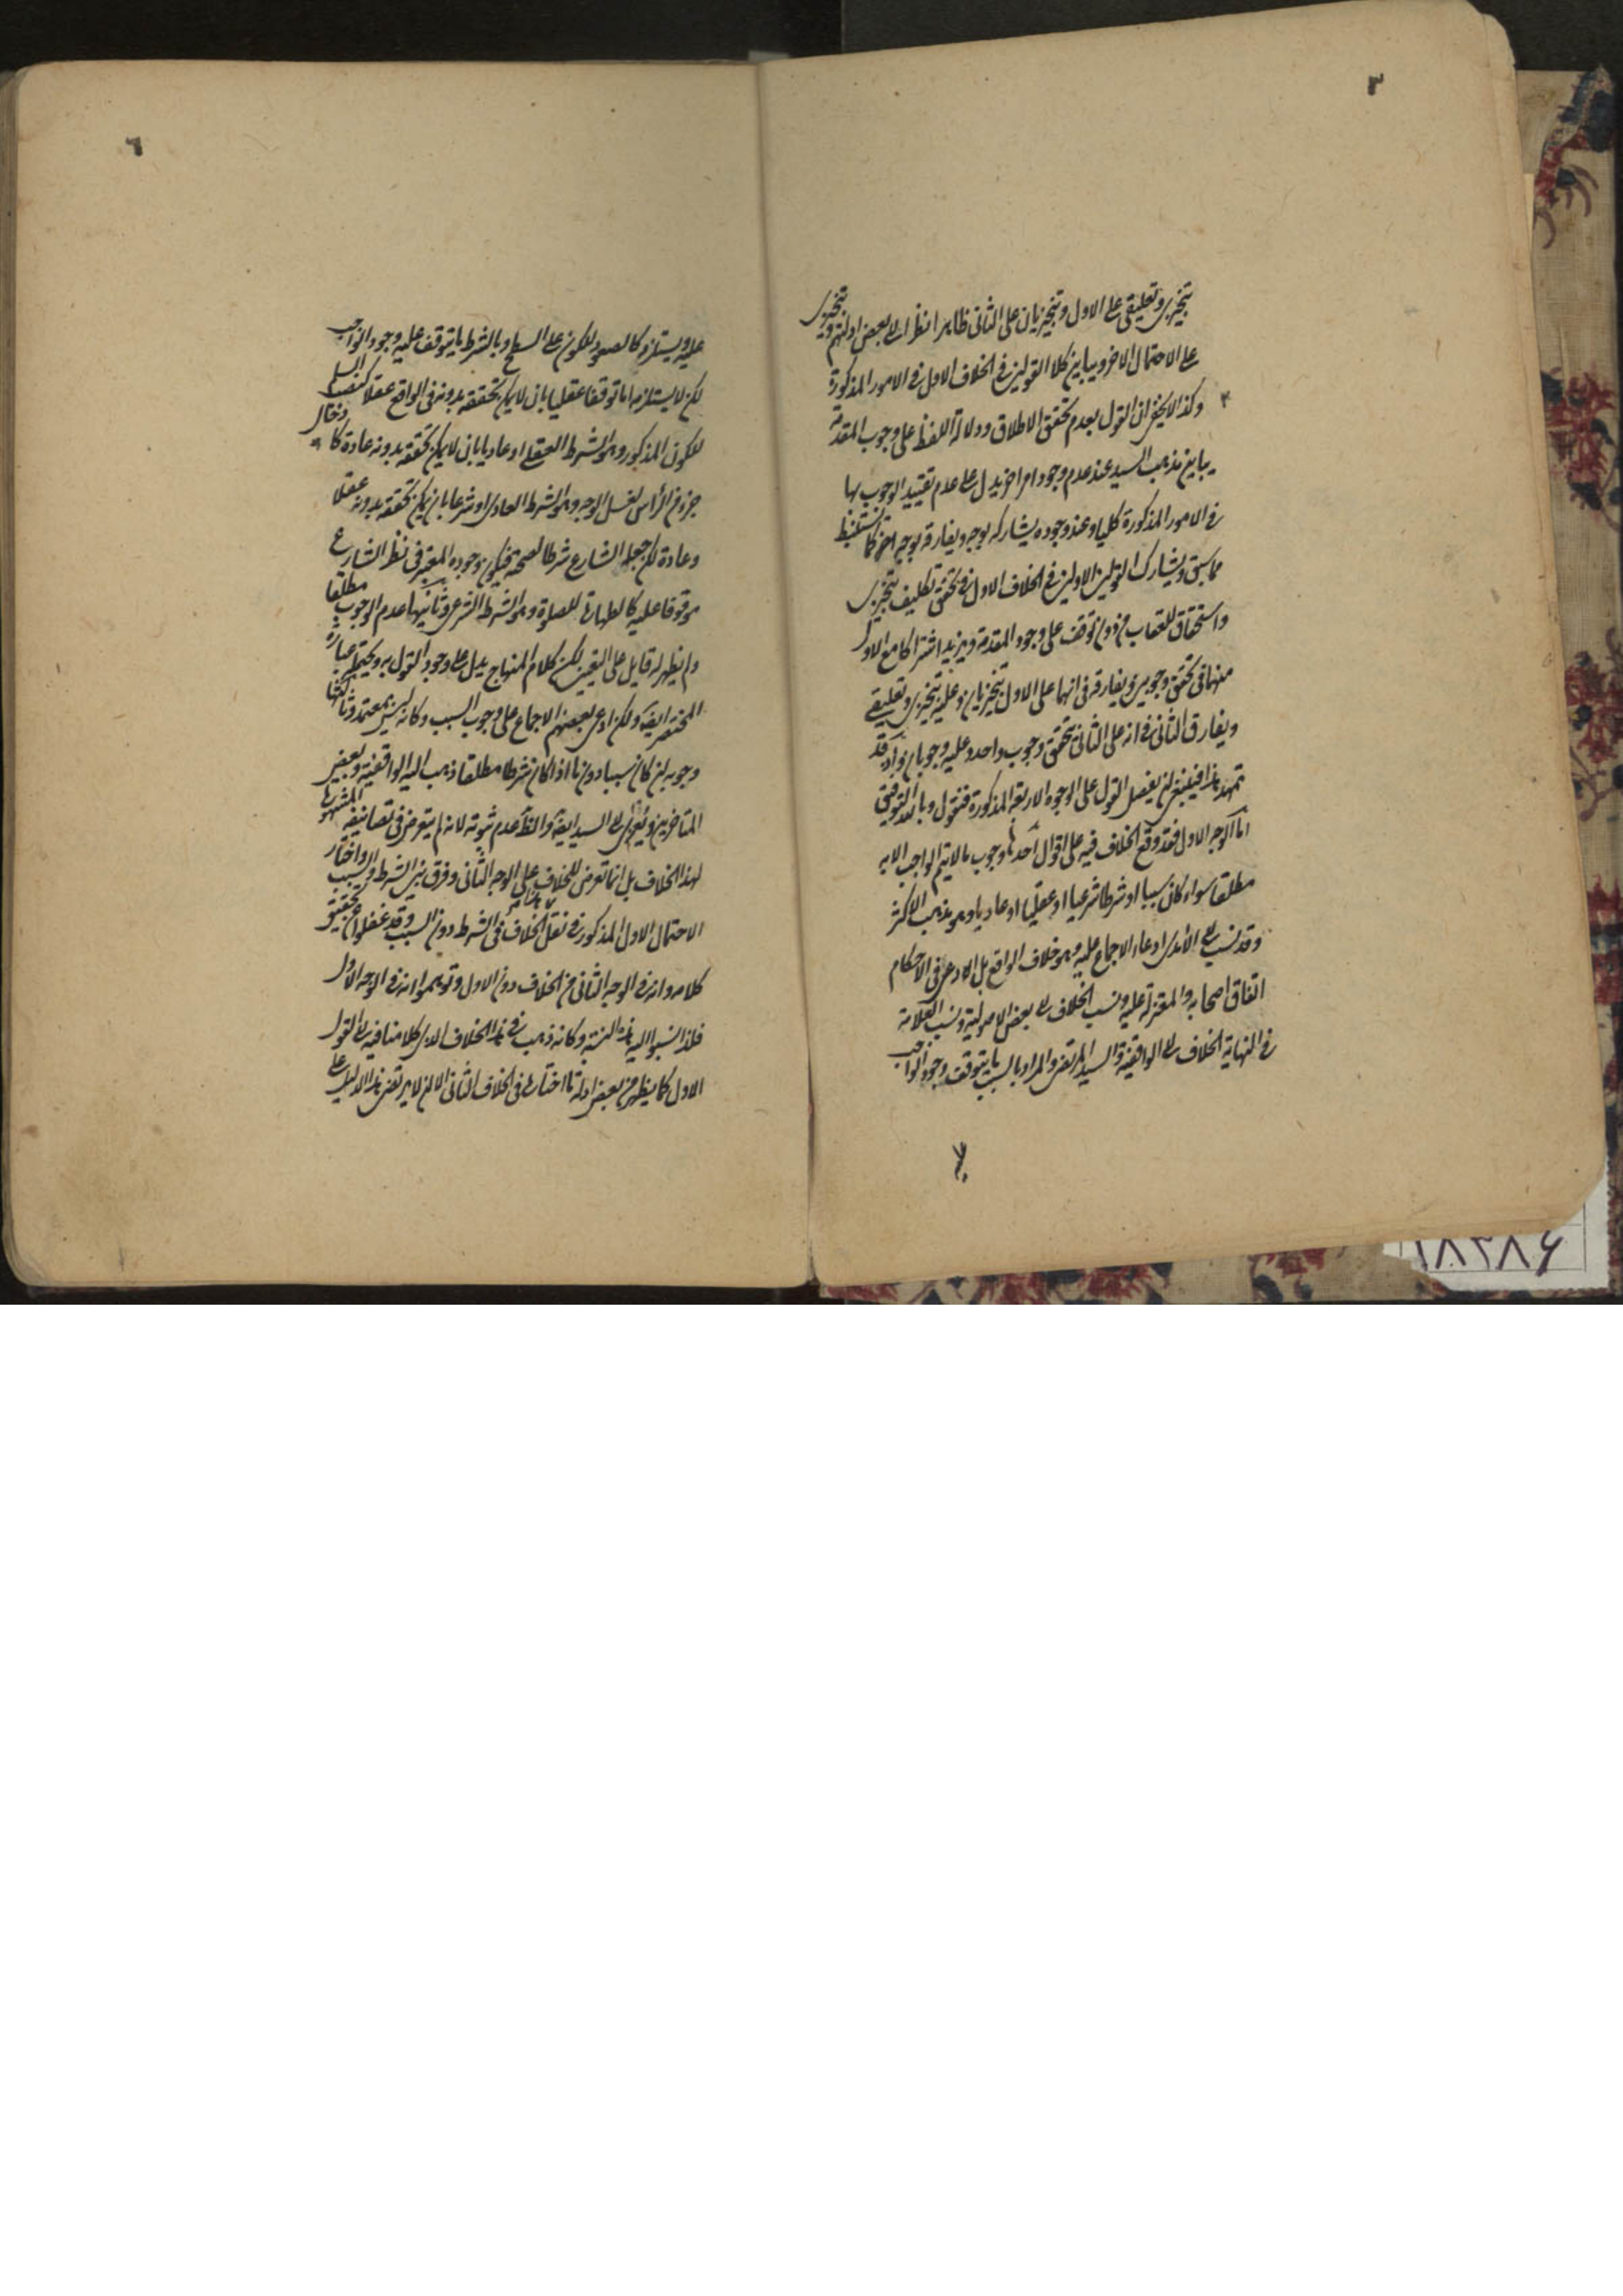 ٣
تنجيزى وتعليقى على الاول وتنجيزيان على الثانى ظاهرا نظرا الى بعض ادلتهم وتنجيزى
على الاحتمال الاخر ويباين كلا القولين فى الخلاف الاول فى الامور المذكورة
وكذا لا يخفى ان القول بعدم تحقق الاطلاق ودلالة اللفظ على وجوب المقدمة
يباين مذهب السيد عند عدم وجود امر اخر يدل على عدم تقييد الوجوب بها
فى الامور المذكورة كليا وعند وجوده يشاركه بوجه ويفارقه بوجه اخر كما يستنبط
مما سبق ويشارك القولين الاولين فى الخلاف الاول فى تحقق تكليف تنجيزى
واستحقاق للعقاب من دون توقف على وجود المقدمة ويزيد اشتراكا مع الاول
منهما فى تحقق وجوبين ويفارقه فى انهما على الاول تنجيزيان وعليه تنجيزى وتعليقى
ويفارق الثانى فى انه على الثانى يتحقق وجوب واحد وعليه وجوبان واذ قد
تمهد هذا فينبغى ان يفصل القول على الوجوه الاربعة المذكورة فنقول وبالله التوفيق
اما الوجه الاول فقد وقع الخلاف فيه على اقوال احدها وجوب ما لا يتم الواجب الا به
مطلقا سواء كان سببا او شرطا شرعيا او عقليا او عاديا وهو مذهب الاكثر
وقد نسب الى الآمدى ادعاء الاجماع عليه وهو خلاف الواقع بل ادعى فى الاحكام
اتفاق اصحابه والمعتزلة عليه ونسب الخلاف الى بعض الاصولية ونسب العلامة
فى النهاية الخلاف الى الواقفية والسيد المرتضى والمراد بالسبب ما يتوقف وجود الواجب
٦
عليه ويستلزمه كالصعود للكون على السطح وبالشرط ما يتوقف عليه وجود الواجب
لكن لا يستلزمه اما توقفا عقليا بان لا يمكن تحققه بدونه فى الواقع عقلا كنصب السلم
للكون المذكور وهو الشرط العقلى او عاديا بان لا يمكن تحققه بدونه عادة كادخال
جزء من الرأس لغسل الوجه وهو الشرط العادى او شرعا بان يمكن تحققه بدونه عقلا
وعادة لكن جعله الشارع شرطا لصحته فيكون وجوده المعتبر فى نظر الشارع
موقوفا عليه كالطهارة للصلوة وهو الشرط الشرعى وثانيها عدم الوجوب مطلقا
ولم يظهر له قايل على التعيين لكن كلام المنهاج يدل على وجود القول به ويحتمله عبارة
المختصر ايضا ولكن ادعى بعضهم الاجماع على وجوب السبب وكانه ليس بمعتمد وثالثها
وجوبه ان كان سببا دون ما اذا كان شرطا مطلقا ذهب اليه الواقفية وبعض
المتاخرين ويعزى الى السيد ايضا والظ عدم ثبوته لانه لم يتعرض فى تصانيفه المشهورة
لهذا الخلاف بل انما تعرض للخلاف على الوجه الثانى وفرق بين الشرط والسبب واختار
الاحتمال الاول المذكور فى نقل الخلاف فى الشرط دون السبب وقد غفلوا عن تحقيق
كلامه وانه فى الوجه الثانى من الخلاف دون الاول وتوهموا انه فى الوجه الاول
فلذا نسبوا اليه هذه النسبة وكانه ذهب فى هذا الخلاف الى كلا منافيه الى القول
الاول كما يظهر من بعض ادلة ما اختاره فى الخلاف الثانى الا ان لا يرتضى هذا الدليل على
١٨٣٨٤